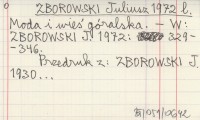 ZBOROWSKI Juliusz 1972 l.
Moda i wieś góralska. – W:
ZBOROWSKI J. 1972: 329-
-346.
Przedruk z: ZBOROWSKI J.
1930...